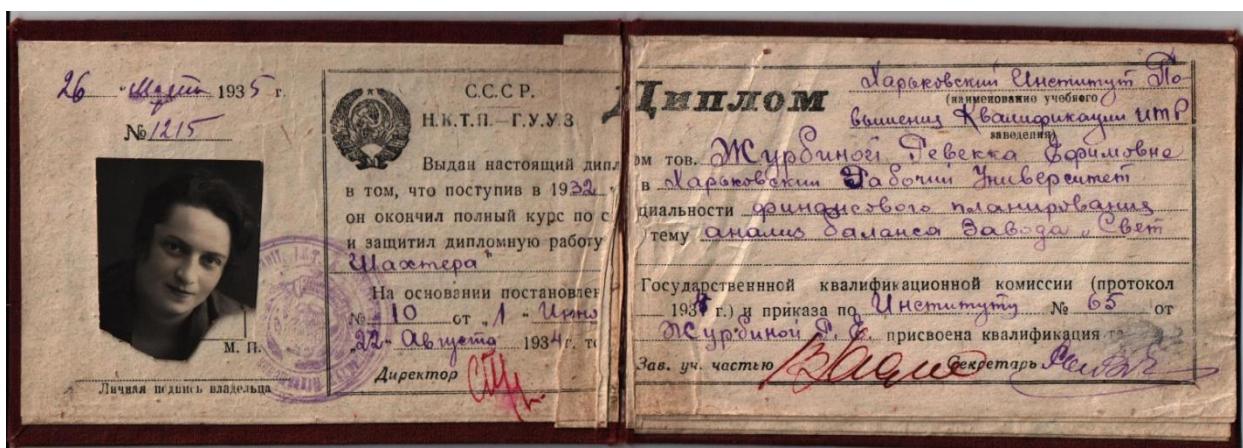 26 Марта 1935 г.
№ 1215
М. П.
Личная подпись владельца
С.С.С Р.
Н.К.Т.П.—Г.У.У.З
Диплом
Харьковский Институт По
(наименование учебного
вышения Квалификации ИТР
заведения)
Выдан настоящий диплом тов. Журбиной Ревекка Ефимовне
в том, что поступив в 1932 в Харьковский Рабочий Университет
он окончил полный курс по специальности финансового планирования
и защитил дипломную работу тему анализ баланса Завода „Свет
Шахтера"
На основании постановлен Государственнной квалификационной комиссии (протокол
№ 10 от „1" 1934 г.) и приказа по Институту № 65 от
„22" Августа 1934 г. то Журбиной Р. Е. присвоена квалификация
Директор Зав. уч. частью Секретарь